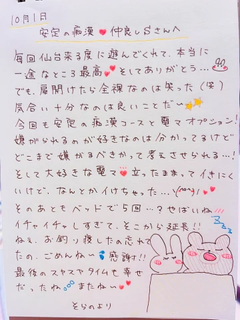 10月1日
安定の痴漢♥仲良しSさんへ
毎回仙台来る度に遊んでくれて、本当に
一途なとこ最高♥そしてありがとう…
でも、扉開けたら全裸なのは笑った(笑)
気合い十分なのは良いことだ〜
今回も安定の痴漢コースと電マオプション!
嫌がられるのが好きなのは分かってるけど
どこまで嫌がるべきかって考えさせられる…!
そして大好きな電マ♥立ったままってイキにく
いけど、なんとかイけちゃった…
そのあともベッドで5回…?やばいね!!!
イチャイチャしすぎて、そこから延長!!
ねぇ、お釣り渡したの忘れて
たの、ごめんね〜 感謝す!!
最後のスヤスヤタイムも幸せ
だったね またね〜♥
そらのより